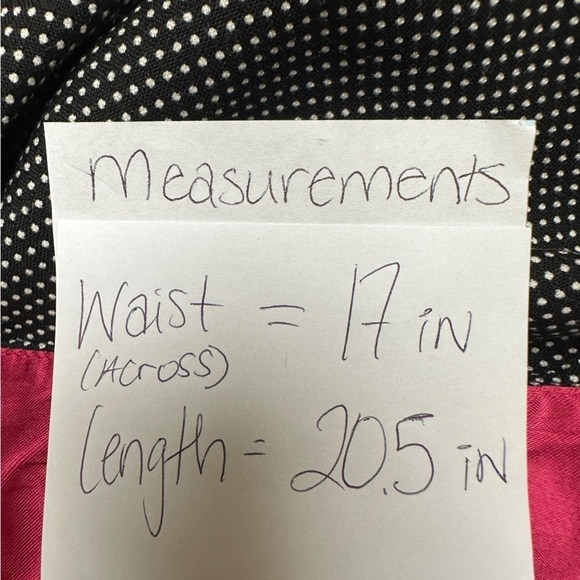 Measurements
Waist = 17 in
(Across)
Length = 20.5 in